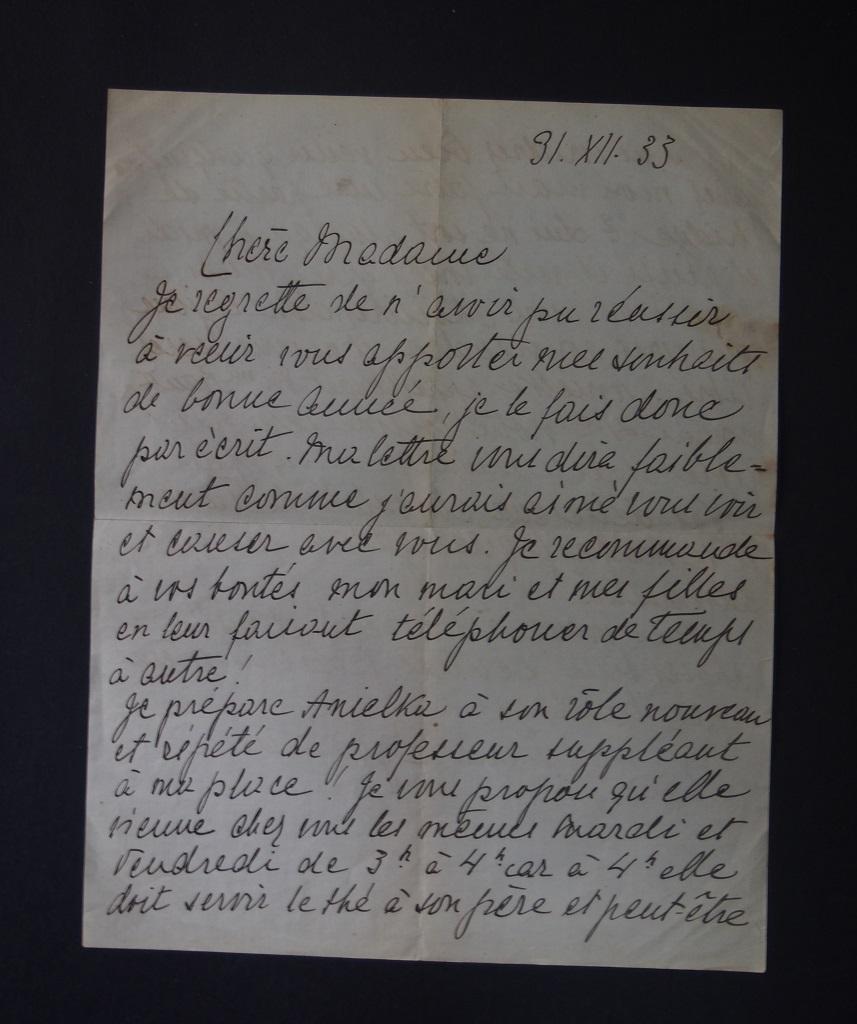 31. XII. 33
Chère Madame
Je regrette de n'avoir pu réussir
à venir vous apporter mes souhaits
de bonne année, je le fais donc
par écrit. Ma lettre vous dira faible=
ment comme j'aurais aimé vous voir
et causer avec vous. Je recommande
à vos bontés mon mari et mes filles
en leur faisant téléphoner de temps
à autre!
Je prépare Anielka à son rôle nouveau
et répété de professeur suppléant
à ma place! Je vous propose qu'elle
vienne chez vous les mêmes Mardi et
Vendredi de 3h à 4h car à 4h elle
doit servir le thé à son père et peut-être